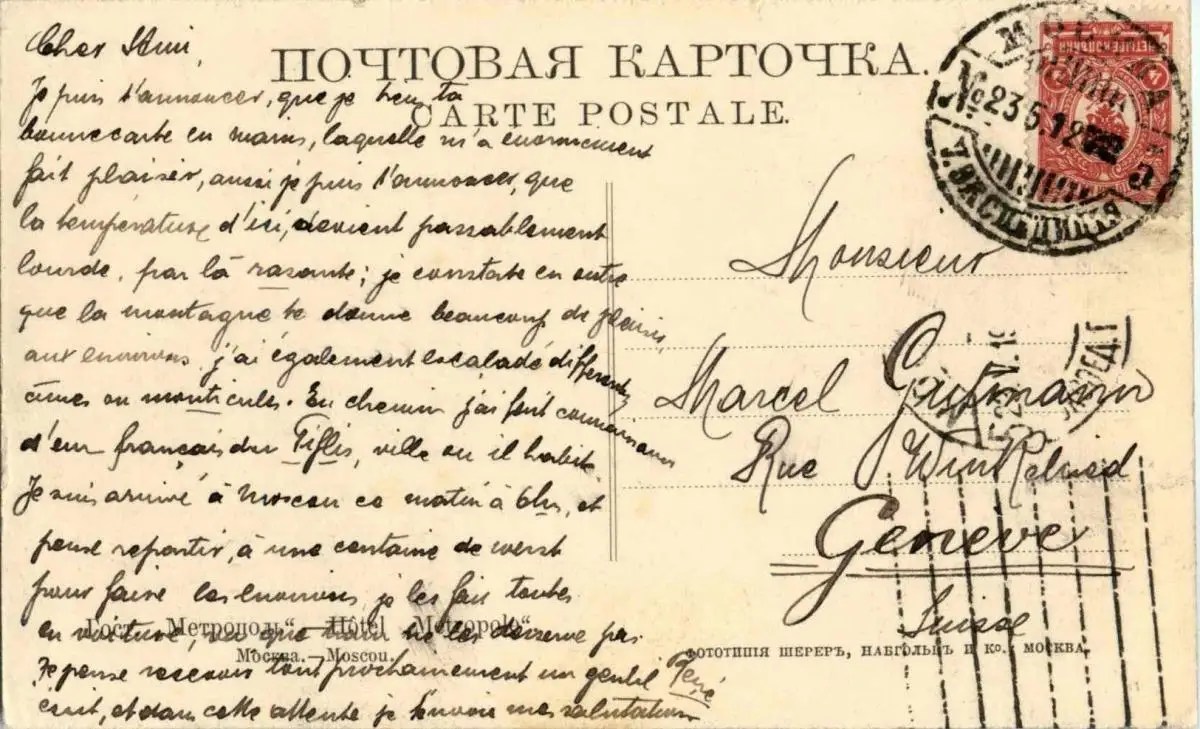 Cher Ami,
ПОЧТОВАЯ КАРТОЧКА.
CARTE POSTALE.
Je puis t'annoncer, que je ta
bonne carte en mains, laquelle m'a enormement
fait plaisir, aussi je puis t'annoncer, que
la température d'ici, devient passablement
lourde, par là rasante; je constate en outre
que la montagne te donne beaucoup de plaisir,
aux environs j'ai également escaladé differents
cimes ou monticules. En chemin j'ai fait connaissance
d'un français du Tiflis, ville ou il habite
Je suis arrivé à Moscou ce matin à 6hrs, et
pense repartir, à une centaine de werst
pour faire les environs, je les fais toutes
en voiture, vu que train ne les desserve pas
Je pense recevoir tout prochainement un gentil
écrit, et dans cette attente je t'envoie mes salutations
René
Monsieur
Marcel Gutmann
Rue Winkelried
Genève
Suisse
Гост. „Метрополь“ — Hôtel „Metropole“
Москва. — Moscou.
ФОТОТИПІЯ ШЕРЕРЪ, НАБГОЛЬЦЪ И Ко. МОСКВА.
МОСКВА
23.5.12
7. ЭКСПЕДИЦІЯ